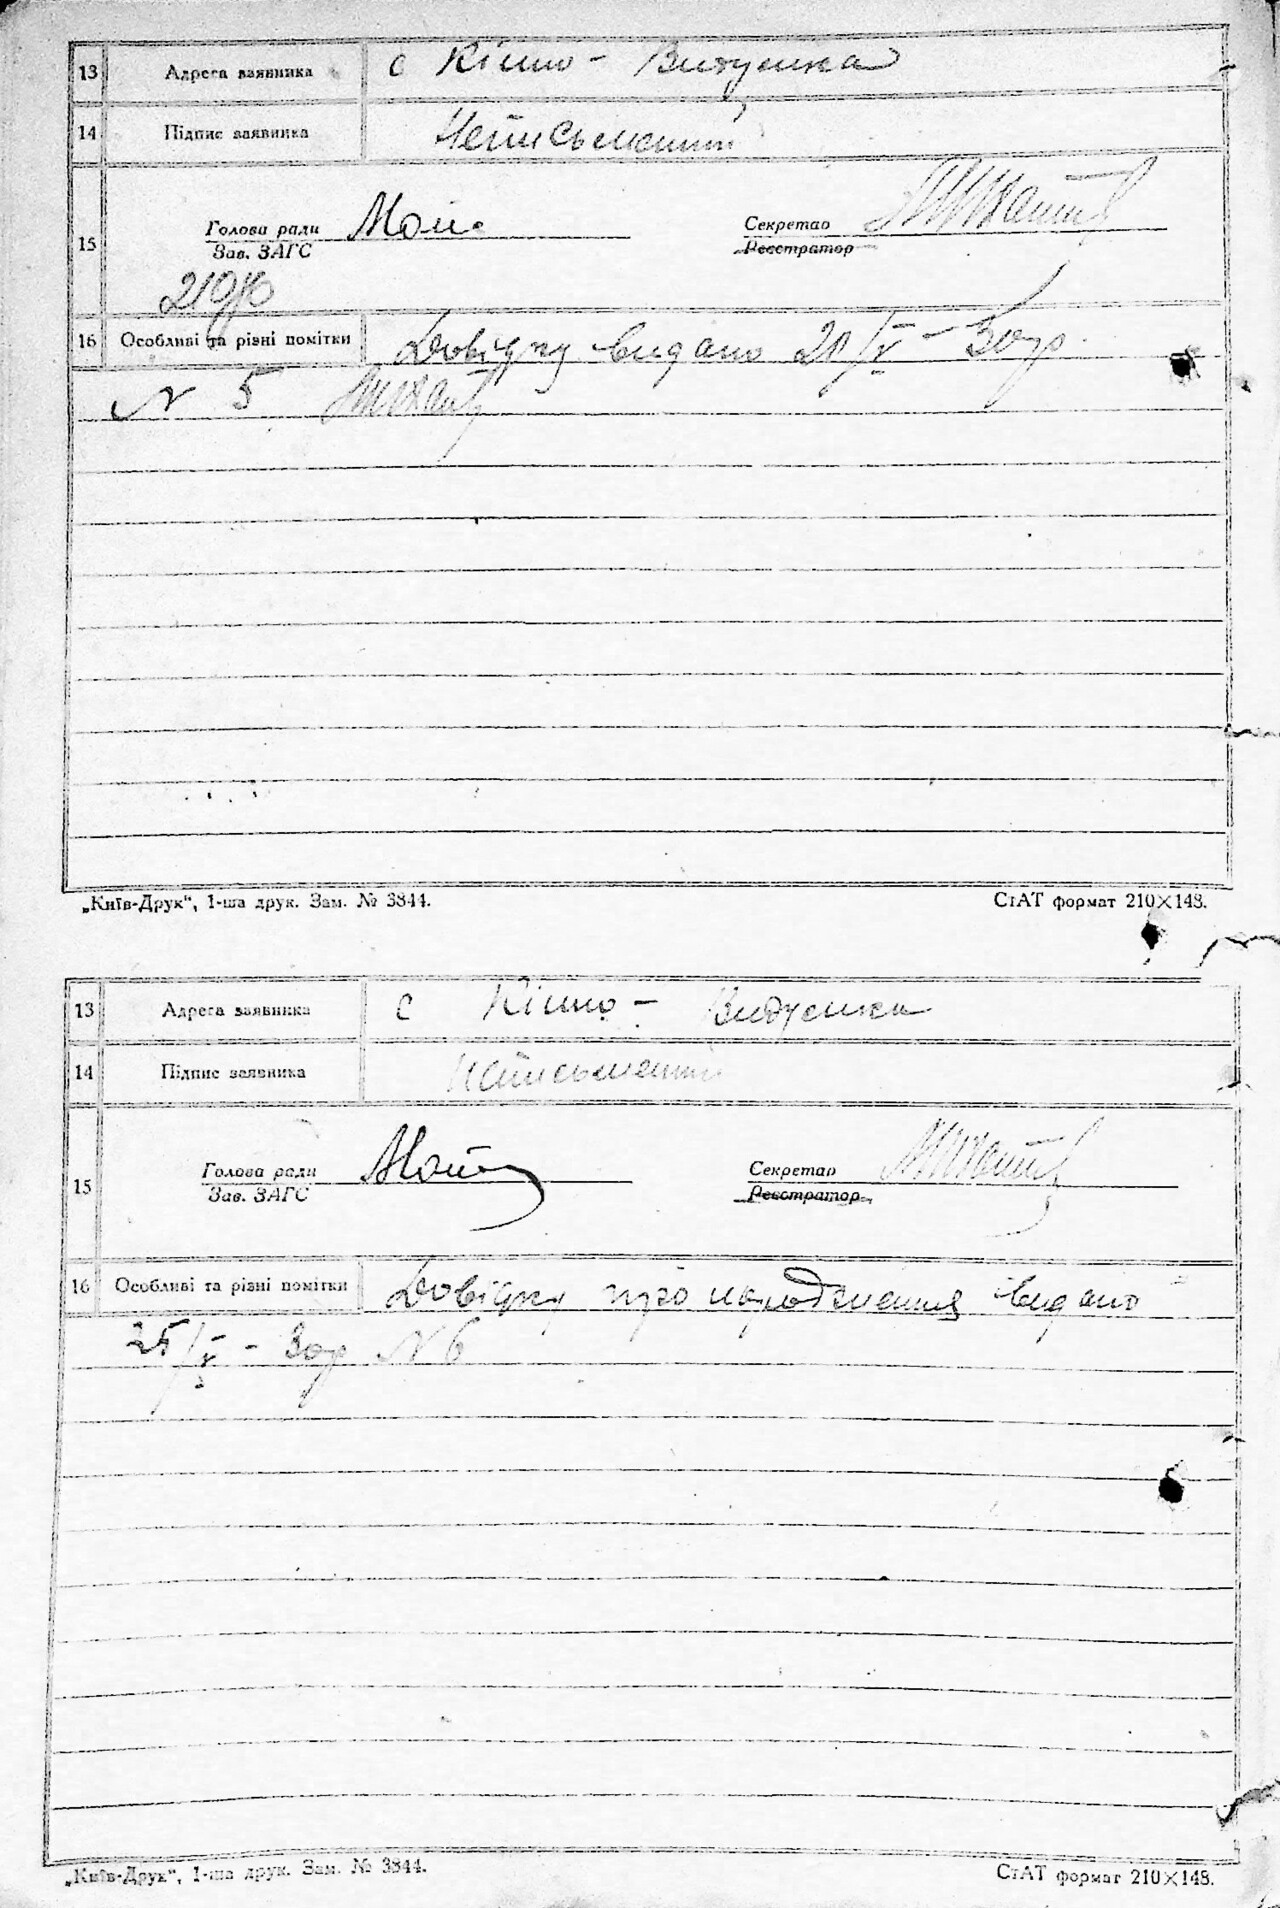 13 Адреса заявника с Кішло-
14 Підпис заявника Неписьменний
15 Голова ради
Зав. ЗАГС
Секретар
Реєстратор
16 Особливі та різні помітки Довідку видано 20/V – 30 р
N 5
„Київ-Друк“, 1-ша друк. Зам. № 3844. СтАТ формат 210×148.
13 Адреса заявника с
14 Підпис заявника Неписьменний
15 Голова ради
Зав. ЗАГС
Секретар
Реєстратор
16 Особливі та різні помітки Довідку про народження видано
25/V – 30 р N 6
„Київ-Друк“, 1-ша друк. Зам. № 3844. СтАТ формат 210×148.